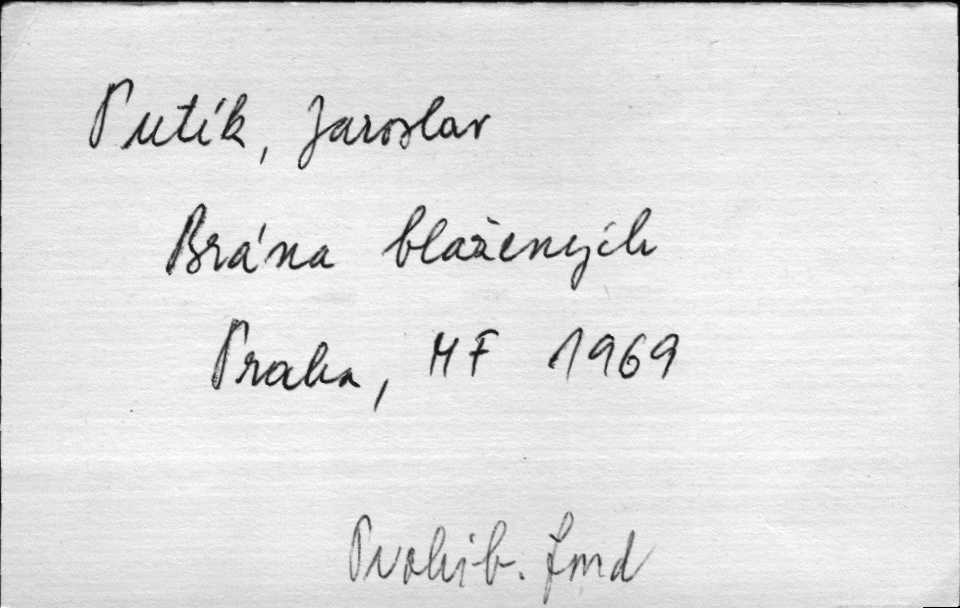 Putík, Jaroslav
Brána blažených
Praha, MF 1969
Prohib. fond